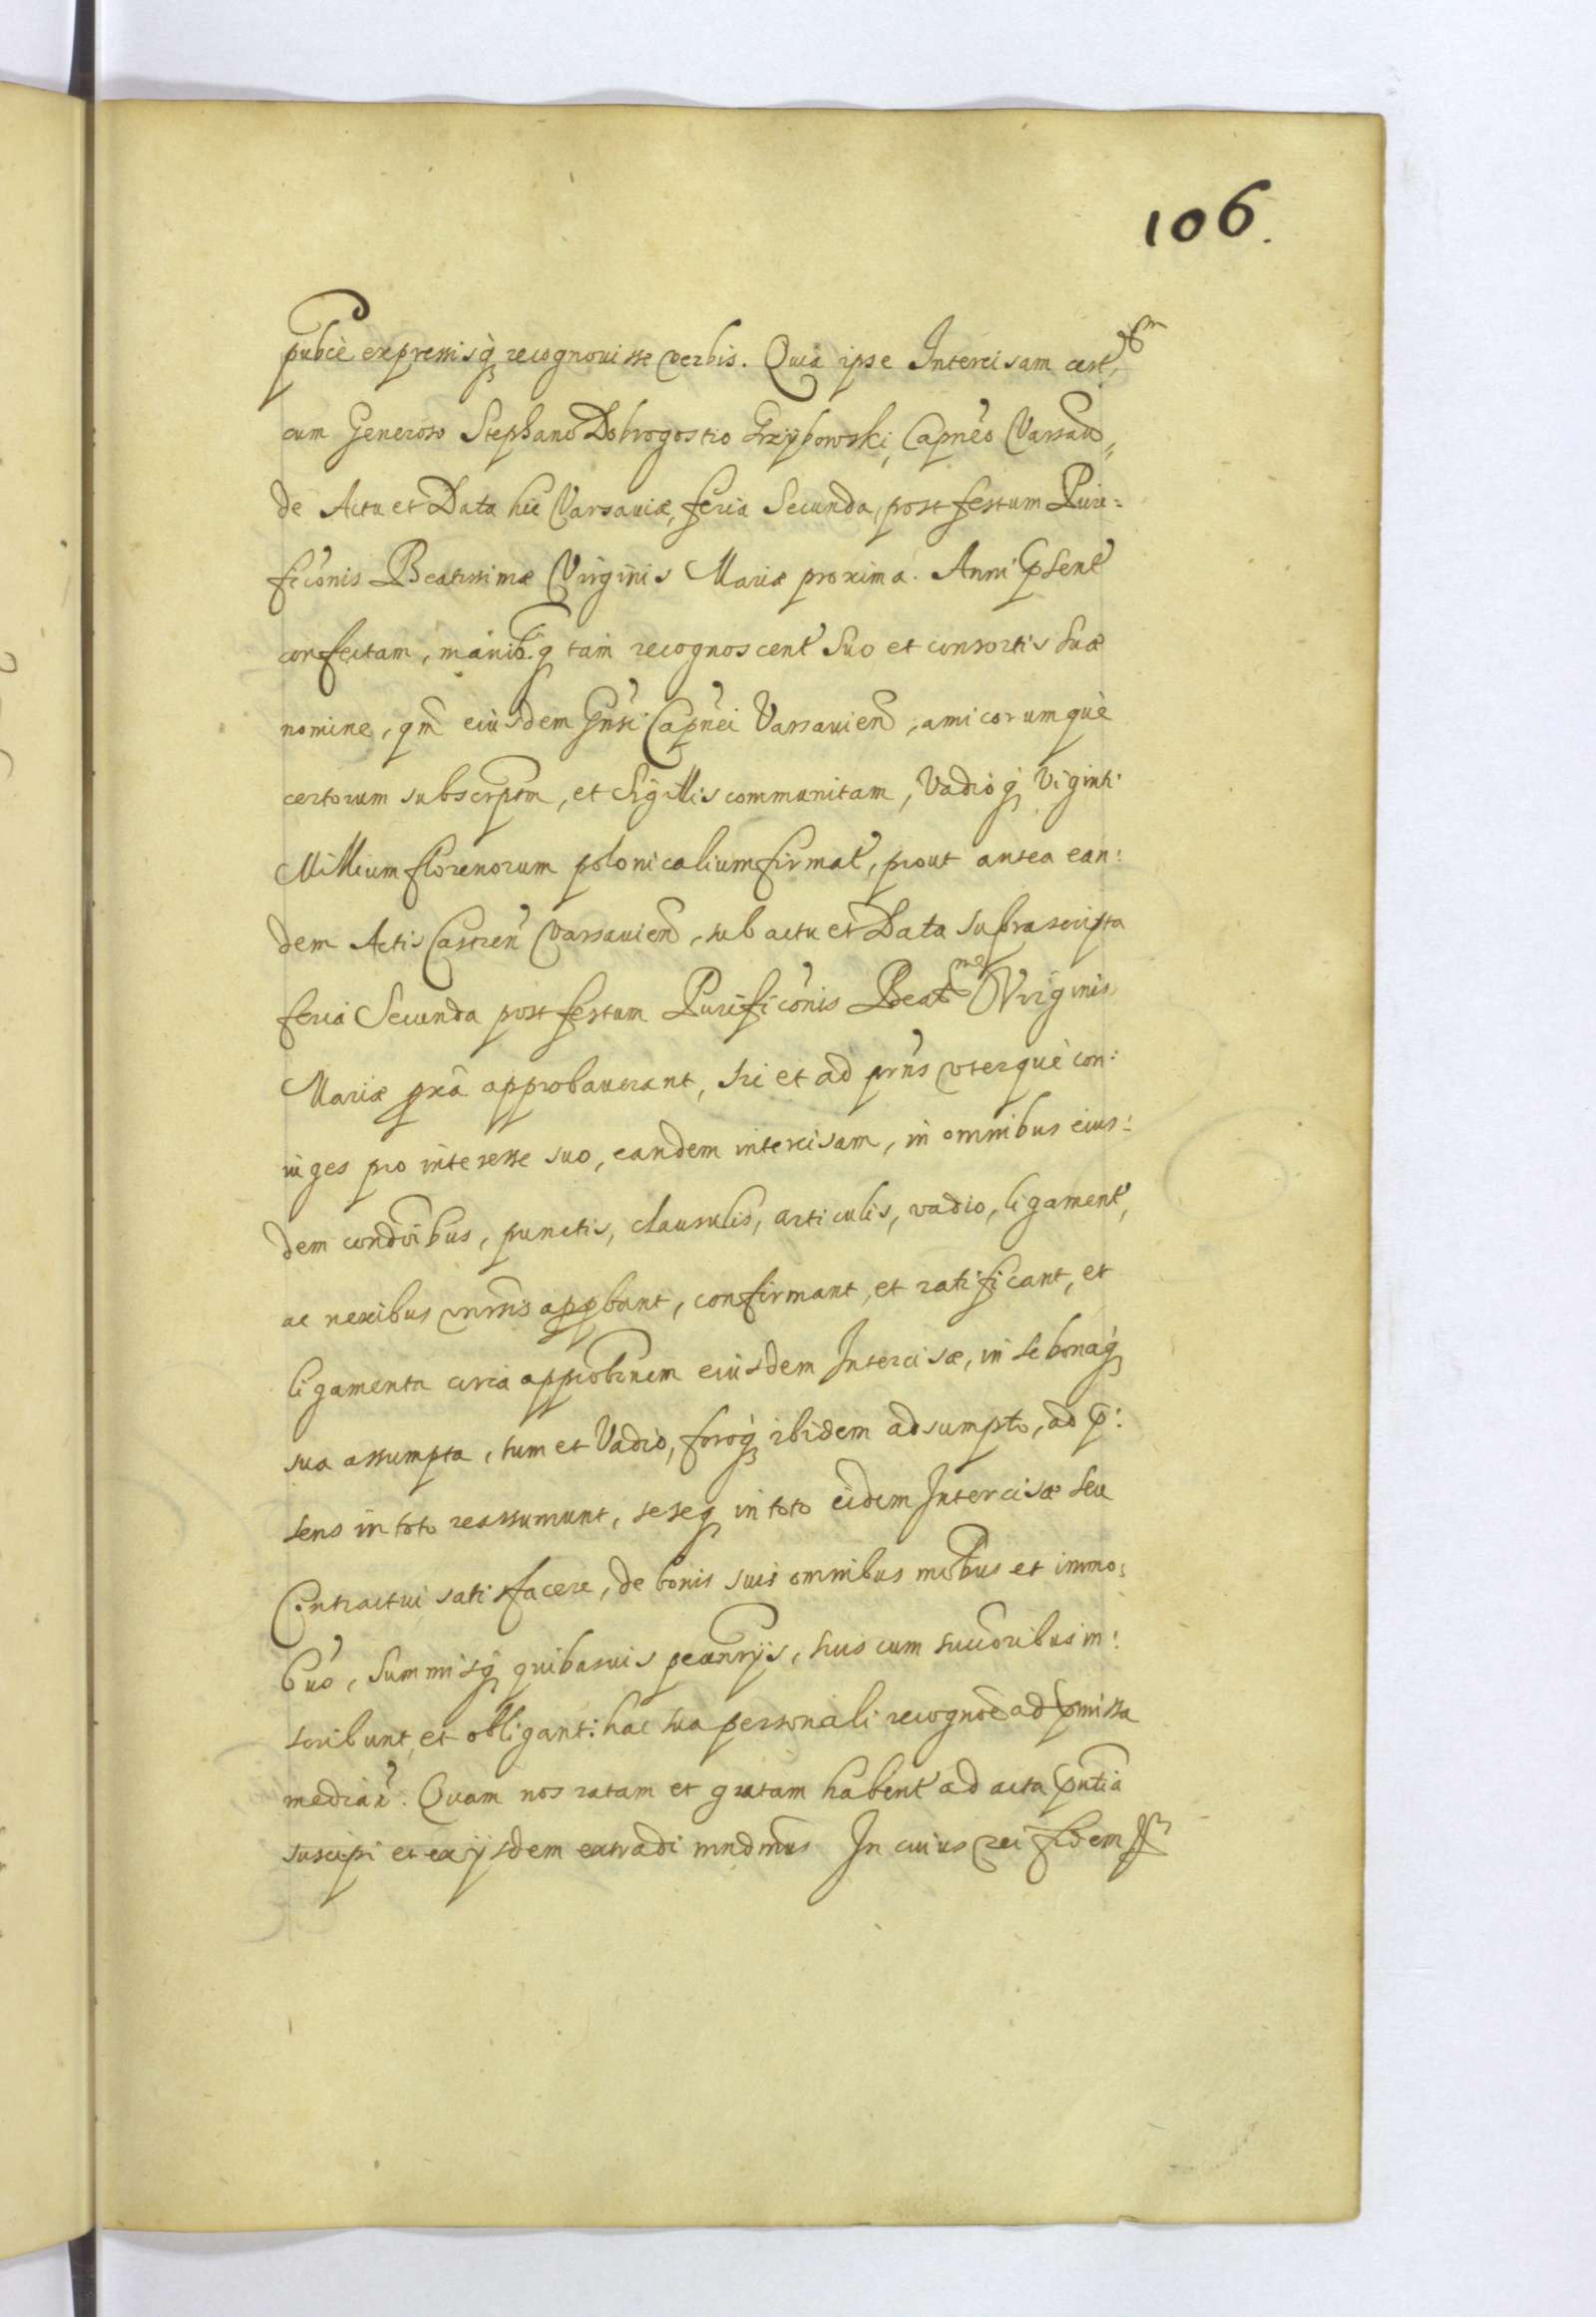 106.
pubcè expressisq recognouisse verbis. Quia ipse Intercisam cert,
cum Generoso Stephano Dobrogostio Grzybowski, Capneo Varsauien
de Actu et Data hic Varsauiæ, feria Secunda, post festum Puri=
ficonis Beatissimæ Virginis Mariæ proxima. Anni psent
confectam, manibq tam recognoscent Suo et consortis Suæ
nomine, qm eiusdem Gnsi Capnei Varsauien, amicorumquè
certorum subscrptm, et Sigillis communitam, Vadioq Viginti
Millium florenorum polonicalium firmat, prout antea ean:
dem Actis Castren Varsauien, sub actu et Data supra scripta
feria Secunda post festum Purificonis Beatmæ Virginis
Mariæ pxa approbauerant, Sic et ad prns vterquè con:
iuges pro interesse suo, eandem intercisam, in omnibus eius:
dem condoibus, punctis, clausulis, articulis, vadio, ligament,
ac nexibus vnirsis appbant, confirmant, et ratificant, et
ligamenta circa approbnem eiusdem Intercisæ, in se bonaq
sua assumpta, tum et Vadio, foroq ibidem adsumpto, ad p:
sens in toto reassumunt, seseq in toto eidem Intercisæ seu
Contractui satisfacere, de bonis suis omnibus mobbus et immo:
buo, Summisq quibusuis pecunrijs, suis cum succoribus in:
scribunt, et obligant: hac sua personali recogno ad pmissa
median. Quam nos ratam et gratam habent ad acta pntia
suscipi et ex ijsdem extradi mndmus In cuius rei fidem